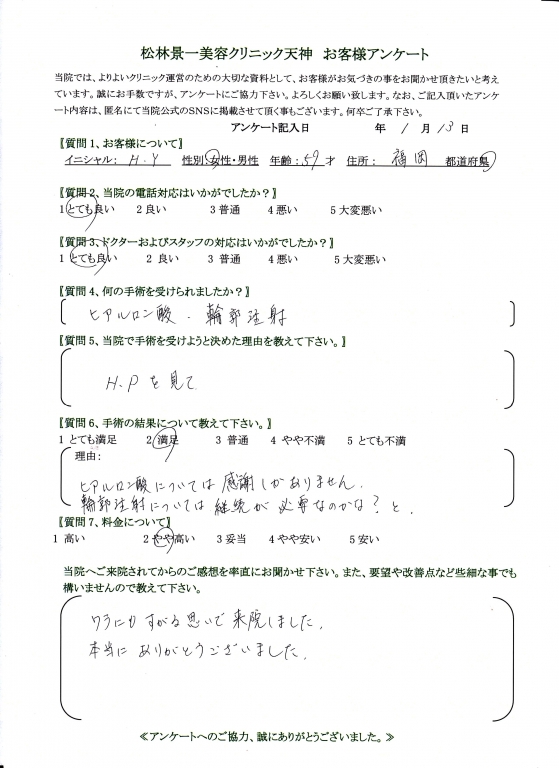 松林景一美容クリニック天神　お客様アンケート
当院では、よりよいクリニック運営のための大切な資料として、お客様がお気づきの事をお聞かせ頂きたいと考え
ています。誠にお手数ですが、アンケートにご協力下さい。よろしくお願い致します。なお、ご記入頂いたアンケ
ート内容は、匿名にて当院公式のSNSに掲載させて頂く事もございます。何卒ご了承下さい。
アンケート記入日　　　年　1　月　13　日
〖質問1、お客様について〗
イニシャル：　H.Y　性別：女性・男性　年齢：59才　住所：　福岡　都道府県
〖質問2、当院の電話対応はいかがでしたか？〗
1とても良い　2良い　3普通　4悪い　5大変悪い
〖質問3、ドクターおよびスタッフの対応はいかがでしたか？〗
1とても良い　2良い　3普通　4悪い　5大変悪い
〖質問4、何の手術を受けられましたか？〗
ヒアルロン酸．輪郭注射
〖質問5、当院で手術を受けようと決めた理由を教えて下さい。〗
H.Pを見て
〖質問6、手術の結果について教えて下さい。〗
1とても満足　2満足　3普通　4やや不満　5とても不満
理由：
ヒアルロン酸については感謝しかありません．
輪郭注射については継続が必要なのかな？と．
〖質問7、料金について〗
1高い　2やや高い　3妥当　4やや安い　5安い
当院へご来院されてからのご感想を率直にお聞かせ下さい。また、要望や改善点など些細な事でも
構いませんので教えて下さい。
ワラにもすがる思いで来院しました．
本当にありがとうございました．
≪アンケートへのご協力、誠にありがとうございました。≫